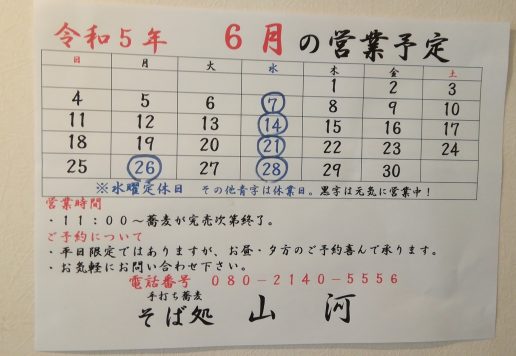 令和5年 6月の営業予定
日 月 火 水 木 金 土
1 2 3
4 5 6 7 8 9 10
11 12 13 14 15 16 17
18 19 20 21 22 23 24
25 26 27 28 29 30
※水曜定休日 その他青字は休業日。黒字は元気に営業中!
営業時間
・11:00~蕎麦が完売次第終了。
ご予約について
・平日限定ではありますが、お昼・夕方のご予約喜んで承ります。
・お気軽にお問い合わせ下さい。
電話番号 080-2140-5556
手打ち蕎麦
そば処 山河